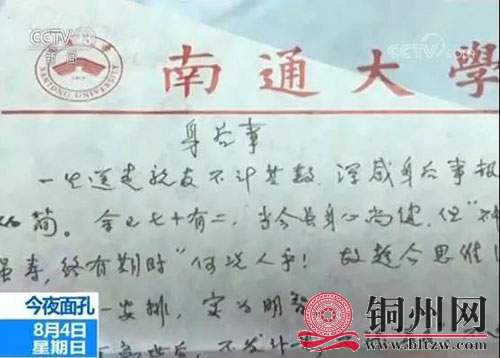 CCTV 13
新闻
NANTONG UNIVERSITY
南通大學
身后事
一生送走亲友不计其数，深感身后事极
必简。余已七十有二，当今虽身心尚健，但“
虽寿，终有期时”何况人乎！故趁今思维
一安排，实为明智
不发讣
今夜面孔
8月4日
星期日
铜州网
www.bltzw.com